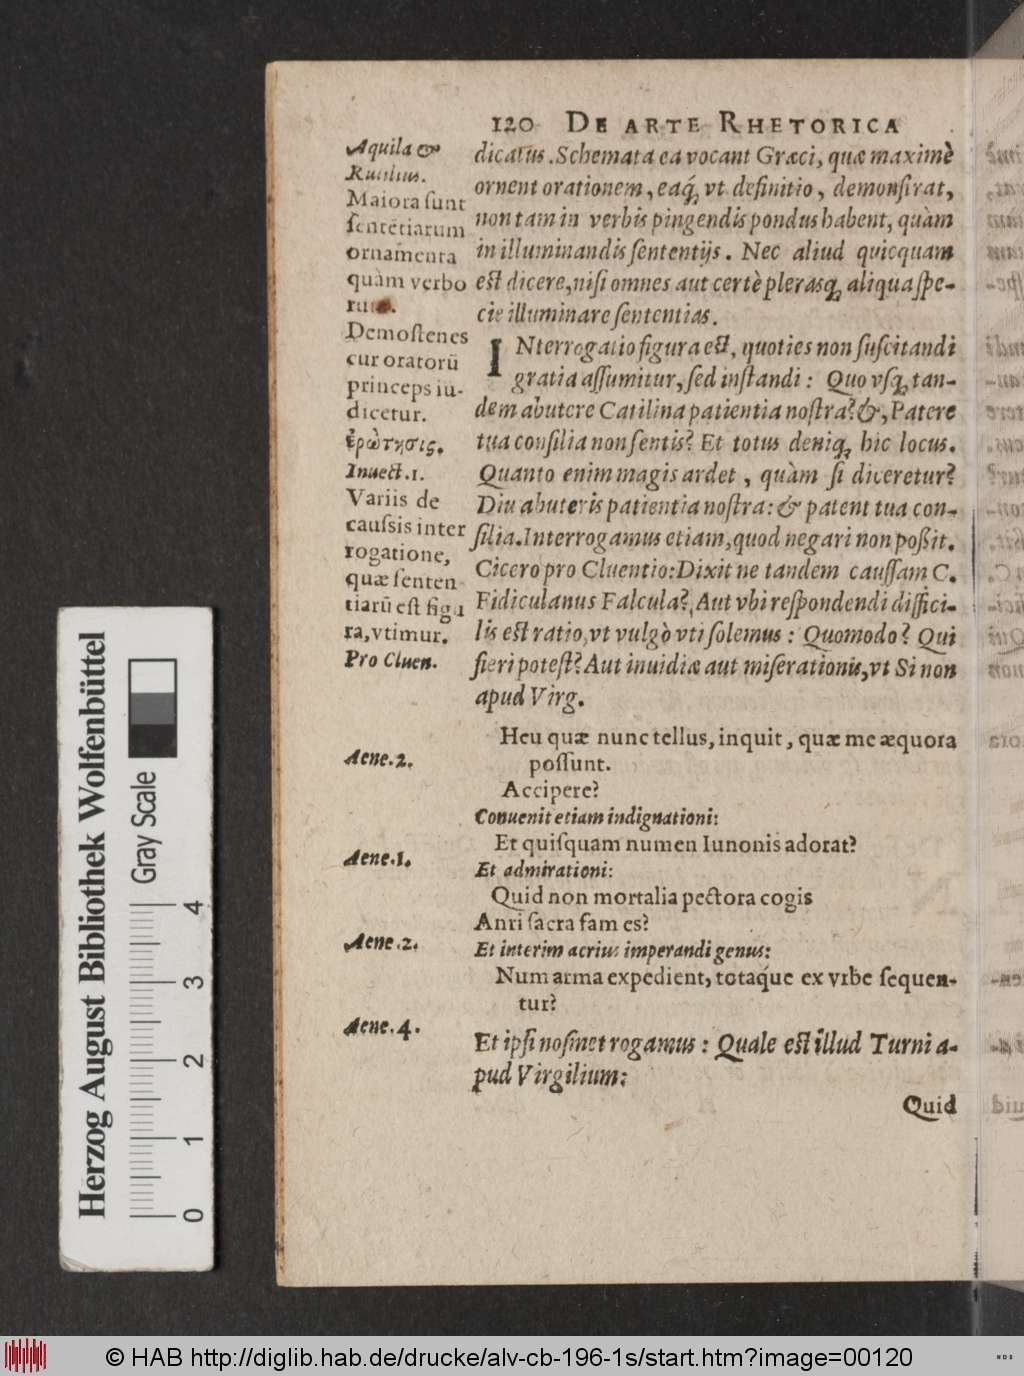 120 DE ARTE RHETORICA
dicatus. Schemata ea vocant Græci, quæ maximè
ornent orationem, eaq́; vt definitio, demonſtrat,
non tam in verbis pingendis pondus habent, quàm
in illuminandis ſententijs. Nec aliud quicquam
eſt dicere, niſi omnes aut certè plerasq; aliqua ſpe-
cie illuminare ſententias.
INterrogatio figura eſt, quoties non ſuſcitandi
gratia aſſumitur, ſed inſtandi: Quo vſq; tan-
dem abutere Catilina patientia noſtra? &, Patere
tua conſilia non ſentis? Et totus deniq; hic locus.
Quanto enim magis ardet, quàm ſi diceretur?
Diu abuteris patientia noſtra: & patent tua con-
ſilia. Interrogamus etiam, quod negari non poßit.
Cicero pro Cluentio: Dixit ne tandem cauſſam C.
Fidiculanus Falcula? Aut vbi reſpondendi diffici-
lis eſt ratio, vt vulgò vti ſolemus: Quomodo? Qui
fieri poteſt? Aut inuidiæ aut miſerationis, vt Si non
apud Virg.
Heu quæ nunc tellus, inquit, quæ me æquora
poſſunt.
Accipere?
Conuenit etiam indignationi:
Et quiſquam numen Iunonis adorat?
Et admirationi:
Quid non mortalia pectora cogis
Anri ſacra fam es?
Et interim acrius imperandi genus:
Num arma expedient, totaq́ue ex vrbe ſequen-
tur?
Et ipſi noſmet rogamus: Quale eſt illud Turni a-
pud Virgilium:
Quid
Aquila &
Rutilius.
Maiora ſunt
ſentētiarum
ornamenta
quàm verbo
rum.
Demoſtenes
cur oratorū
princeps iu-
dicetur.
ἐρώτησις.
Inuect. 1.
Variis de
cauſsis inter
rogatione,
quæ ſenten
tiarū eſt figu
ra, vtimur.
Pro Cluen.
Aene. 2.
Aene. 1.
Aene. 2.
Aene. 4.
Herzog August Bibliothek Wolfenbüttel
Gray Scale
0 1 2 3 4
© HAB http://diglib.hab.de/drucke/alv-cb-196-1s/start.htm?image=00120